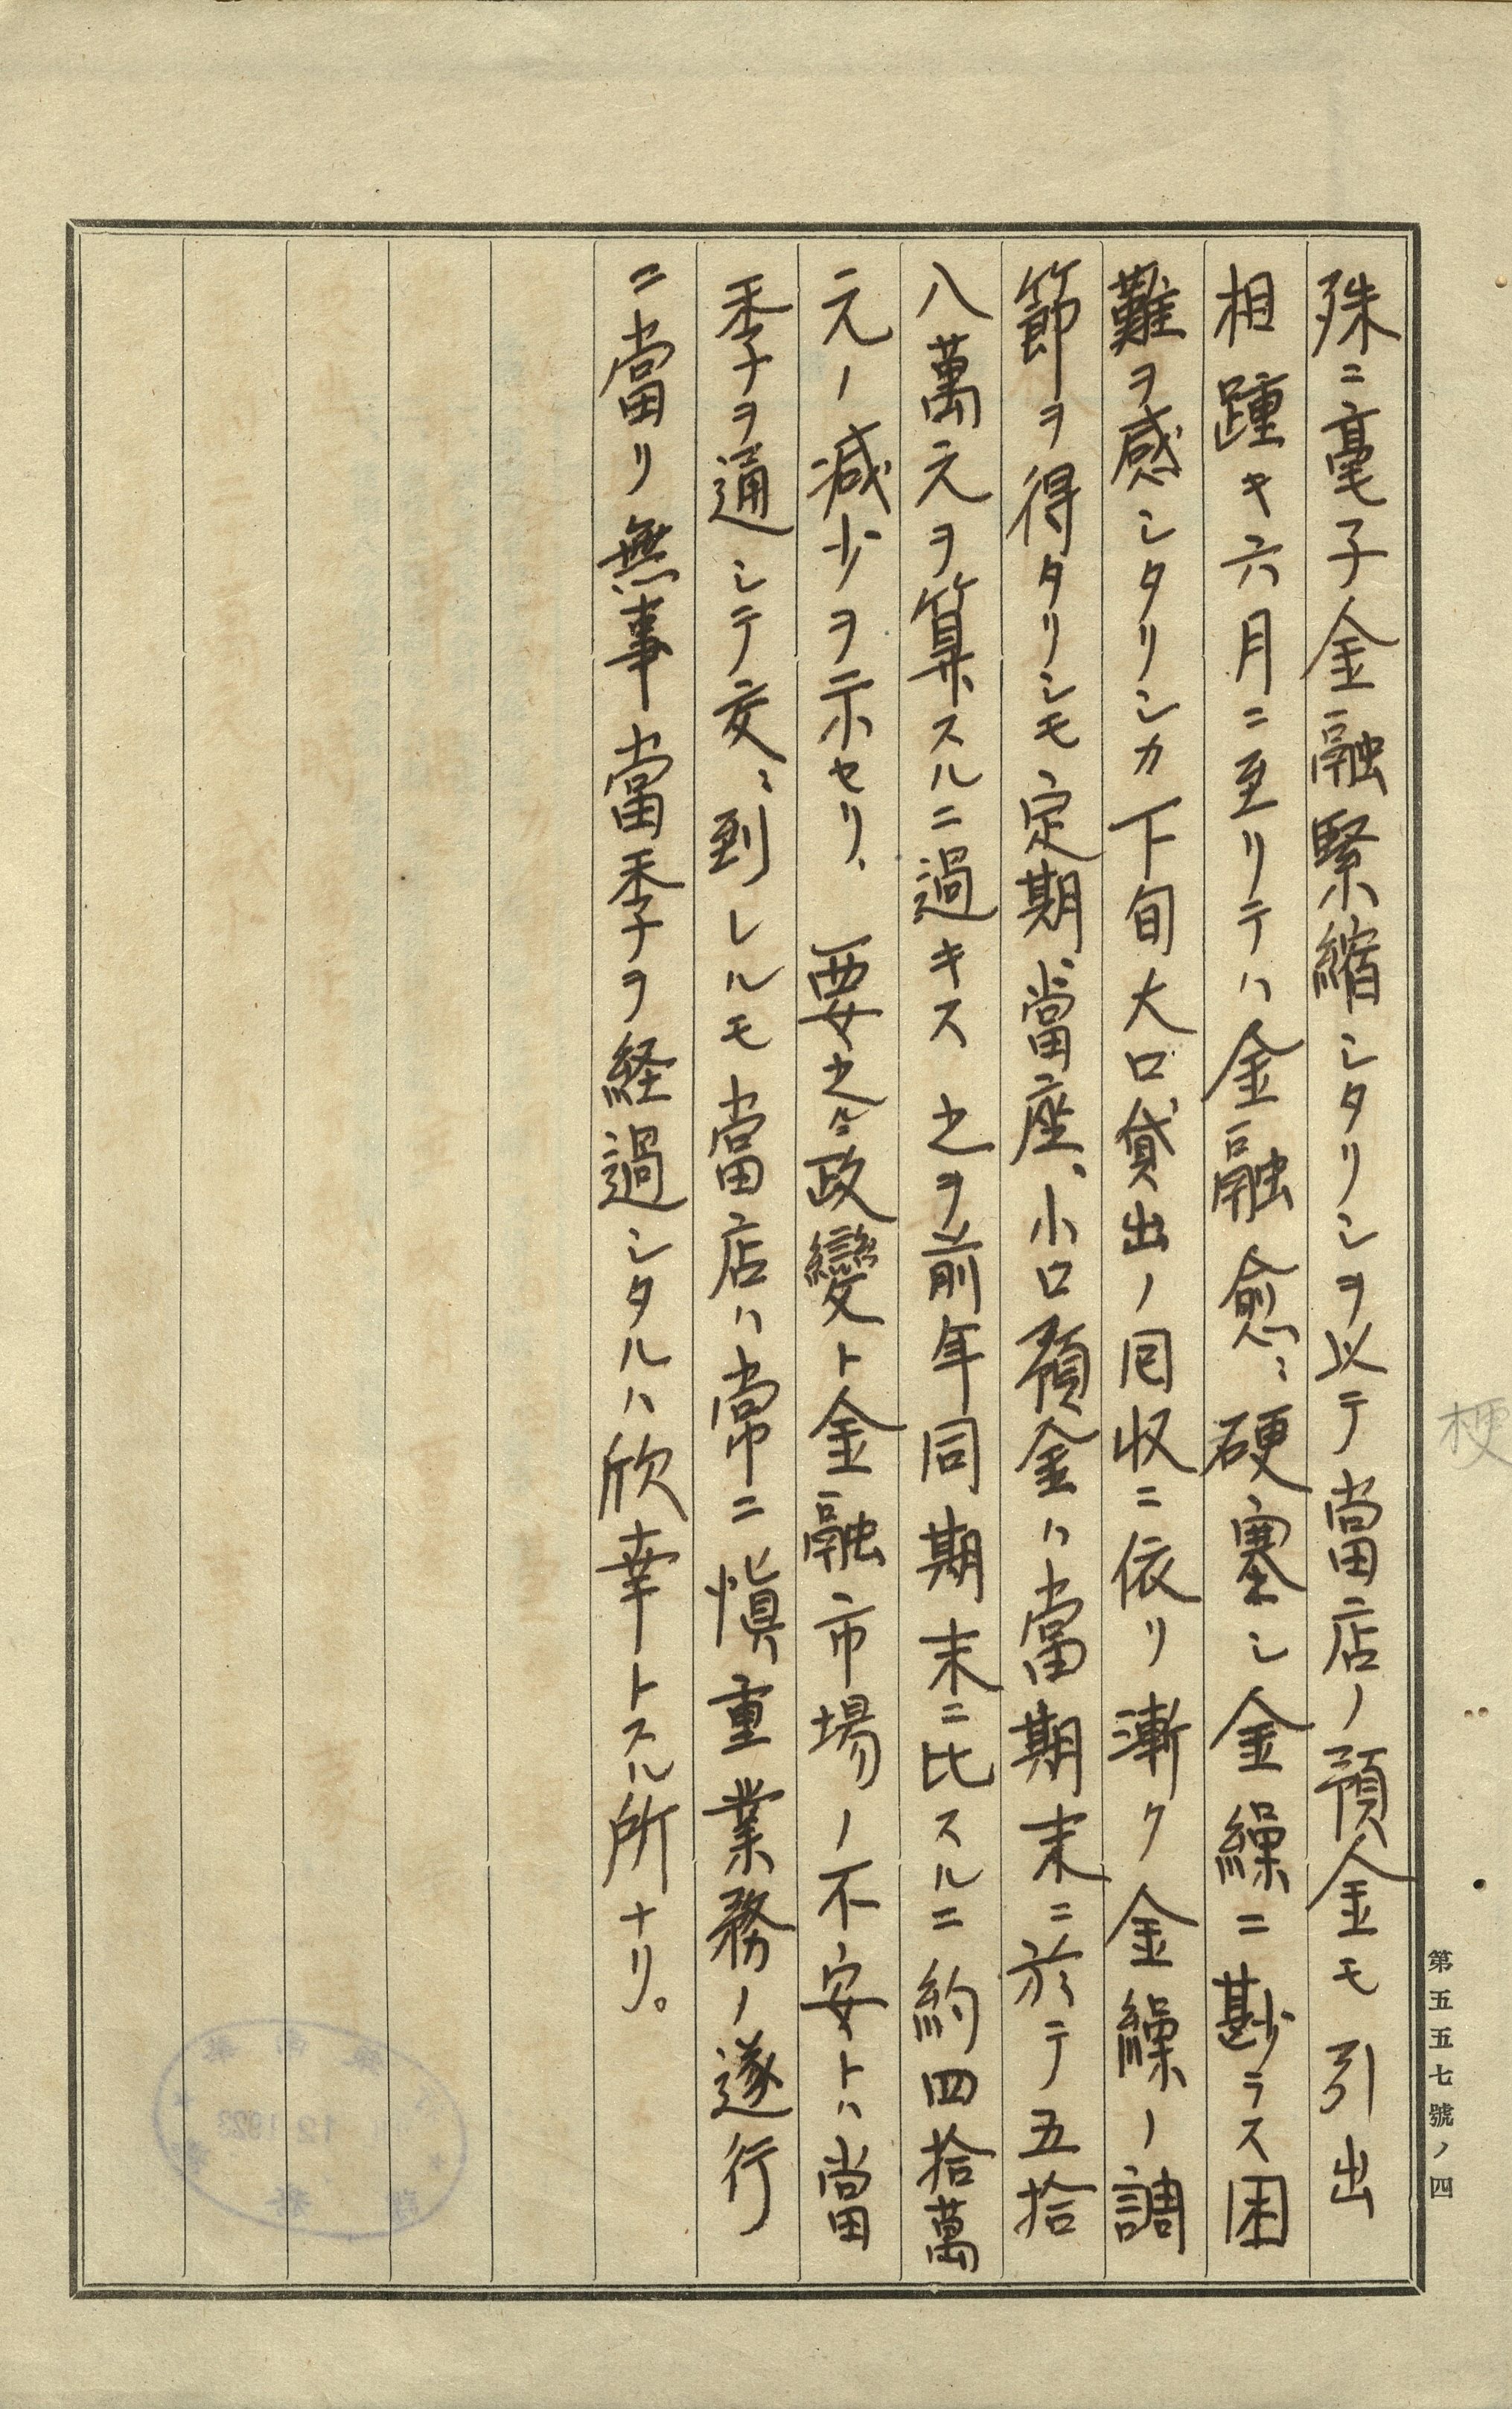 殊ニ毫子金融緊縮シタリシヲ以テ當店ノ預金モ引出
相踵キ六月ニ至リテハ金融愈〻硬塞シ金繰ニ尠ラス困
難ヲ感シタリシカ下旬大口貸出ノ囘収ニ依リ漸ク金繰ノ調
節ヲ得タリシモ定期、當座、小口預金ハ當期末ニ於テ五拾
八萬元ヲ算スルニ過キス之ヲ前年同期末ニ比スルニ約四拾萬
元ノ減少ヲ示セリ、要之ニ政變ト金融市場ノ不安トハ當
季ヲ通シテ交〻到レルモ當店ハ常ニ愼重業務ノ遂行
ニ當リ無事當季ヲ経過シタルハ欣幸トスル所ナリ。
梗
第五五七號ノ四